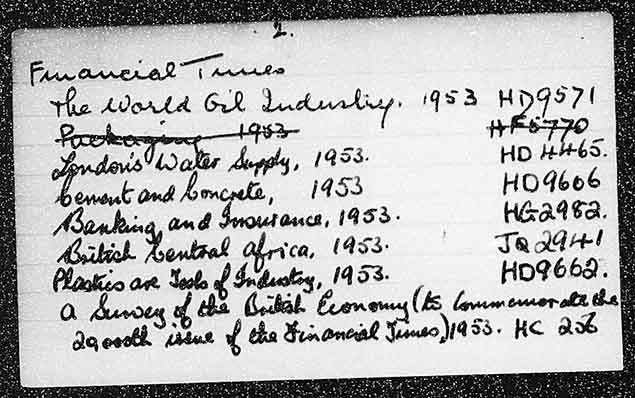 2.
Financial Times
The World Oil Industry. 1953 HD9571
Packaging 1953 HF5770
London's Water Supply, 1953. HD4465.
Cement and Concrete, 1953 HD9606
Banking and Insurance, 1953. HG2982.
British Central Africa, 1953. JQ2941
Plastics are Tools of Industry, 1953. HD9662.
A Survey of the British Economy (to commemorate the
20000th issue of the Financial Times), 1953. HC 256